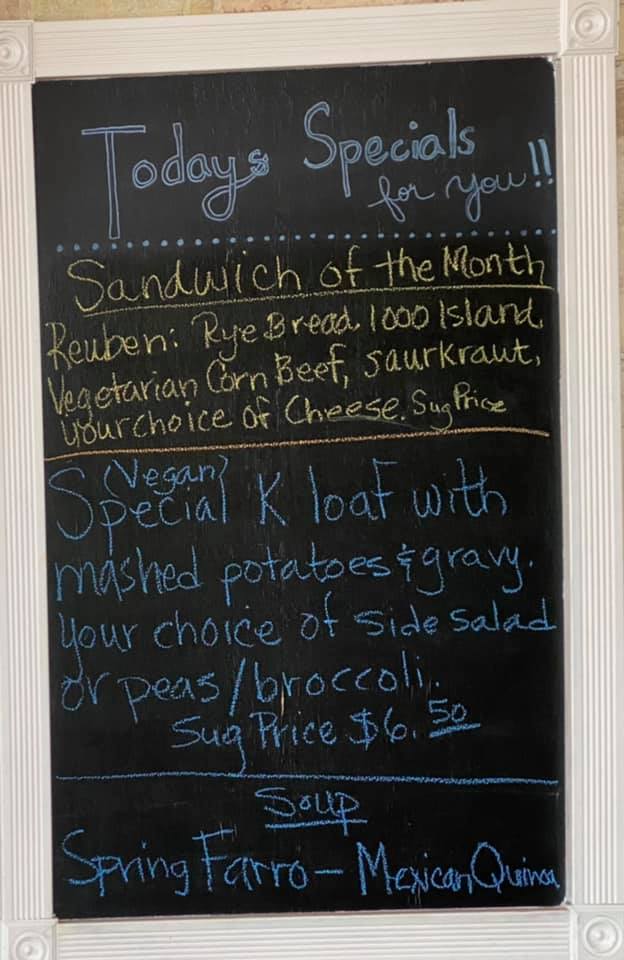 Todays Specials
for you!!
Sandwich of the Month
Reuben: Rye Bread, 1000 Island,
Vegetarian Corn Beef, saurkraut,
your choice of Cheese. Sug Price
(Vegan)
Special K loaf with
mashed potatoes & gravy.
your choice of side salad
or peas/broccoli.
Sug Price $6.50
Soup
Spring Farro - Mexican Quinoa